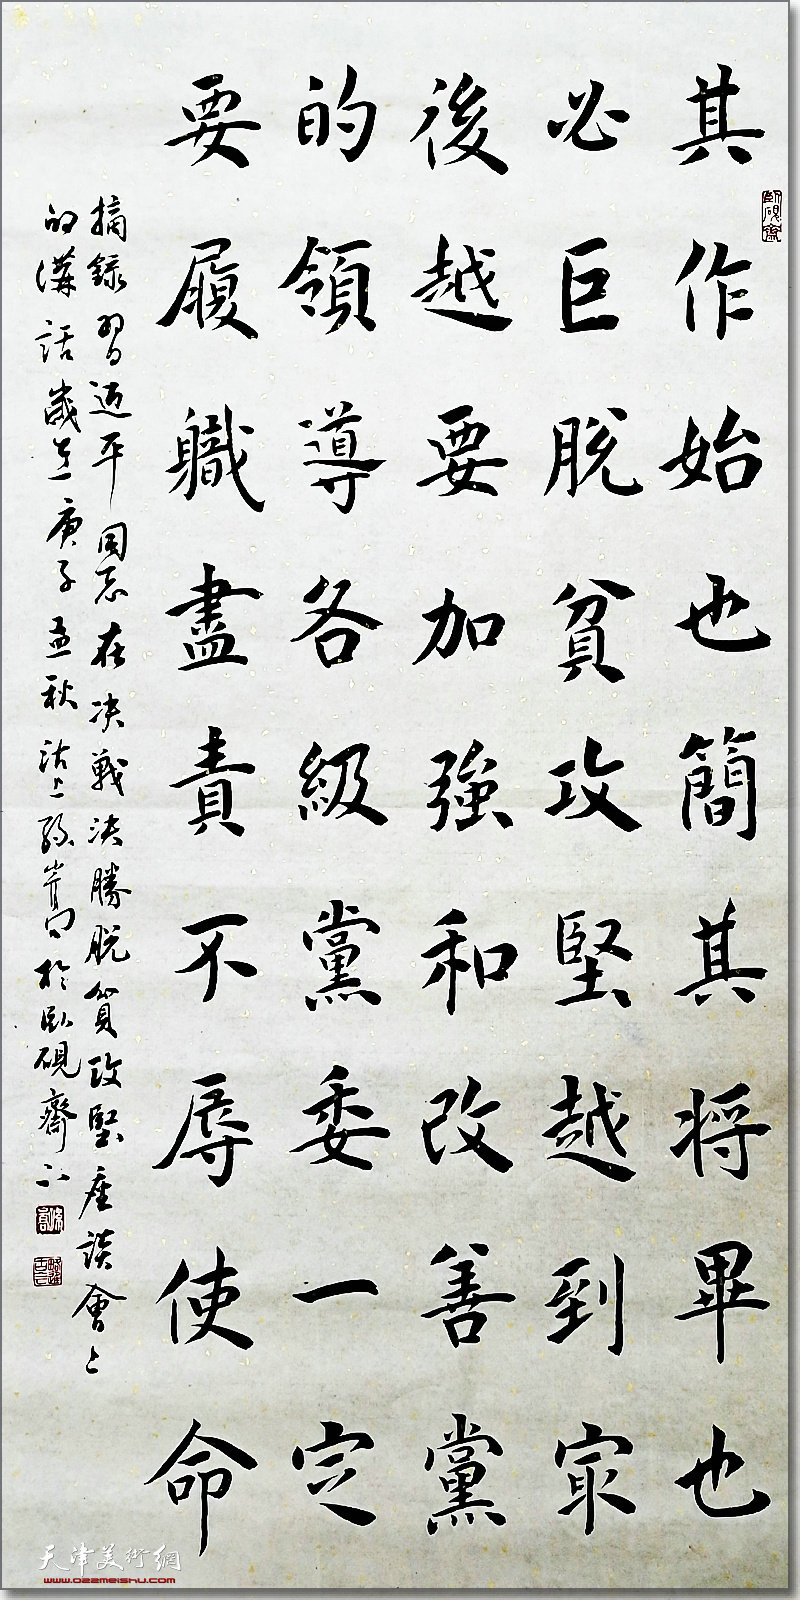 其作始也簡其将畢也
必巨脫貧攻堅越到最
後越要加強和改善黨
的領導各級黨委一定
要履職盡責不辱使命
摘録習近平同志在决戰决勝脫貧攻堅座談會上
的講話歲在庚子孟秋沽上 於臥硯齋下
臥硯齋
天津美術網
www.022meishu.com